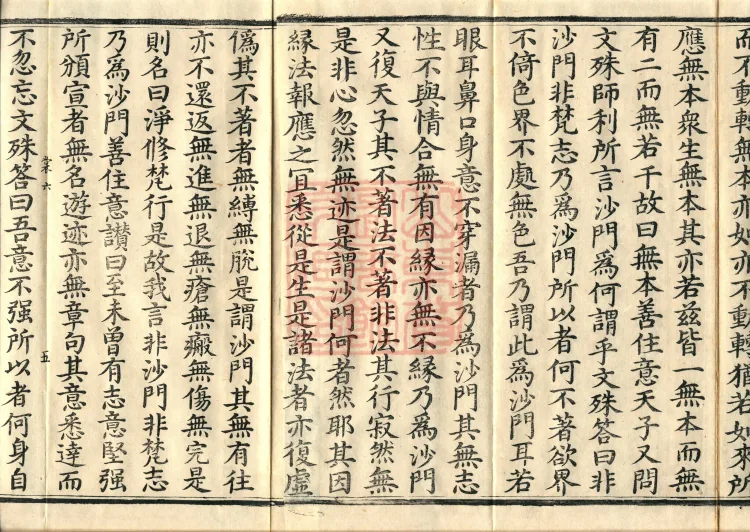 而不動轉無本亦如亦不動轉猶若如來所
應無本衆生無本其亦若兹皆一無本而無
有二而無若干故曰無本善住意天子又問
文殊師利所言沙門爲何謂乎文殊答曰非
沙門非梵志乃爲沙門所以者何不著欲界
不倚色界不處無色吾乃謂此爲沙門耳若
眼耳鼻口身意不穿漏者乃爲沙門其無志
性不與情合無有因緣亦無不緣乃爲沙門
又復天子其不著法不著非法其行寂然無
是非心忽然無迹是謂沙門何者然耶其因
緣法報應之冝悉從是生是諸法者亦復虛
僞其不著者無縛無脫是謂沙門其無有往
亦不還返無進無退無瘡無癜無傷無完是
則名曰淨修梵行是故我言非沙門非梵志
乃爲沙門善住意讃曰至未曾有志意堅强
所頒宣者無名遊迹亦無章句其意悉達而
棠六 五
不忽忘文殊答曰吾意不强所以者何身自